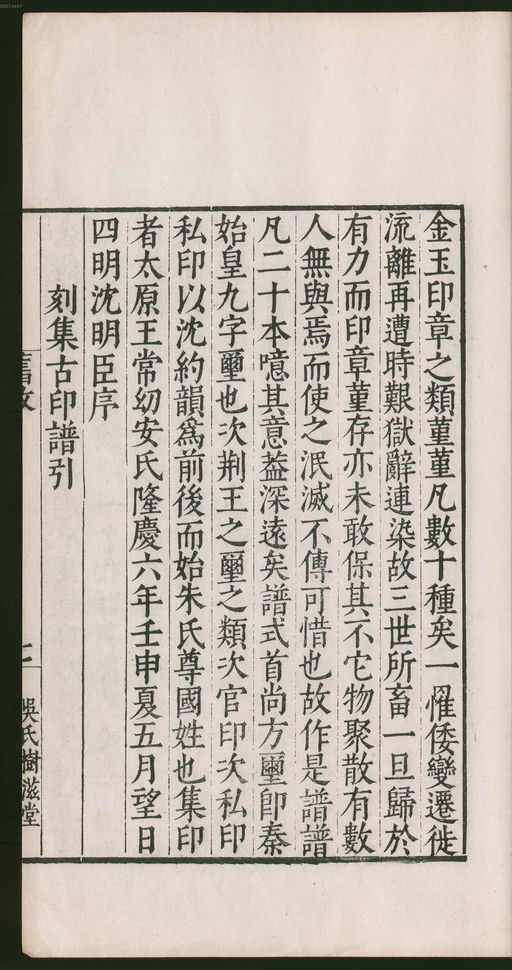 金玉印章之類菫菫凡數十種矣一罹倭變遷徙
流離再遭時艱獄辭連染故三世所畜一旦歸於
有力而印章菫存亦未敢保其不它物聚散有數
人無與焉而使之泯滅不傳可惜也故作是譜譜
凡二十本噫其意葢深遠矣譜式首尚方璽卽秦
始皇九字璽也次荆王之璽之類次官印次私印
私印以沈約韻爲前後而始朱氏尊國姓也集印
者太原王常幼安氏隆慶六年壬申夏五月望日
四明沈明臣序
刻集古印譜引
舊敘 二 吳氏樹滋堂
00073487